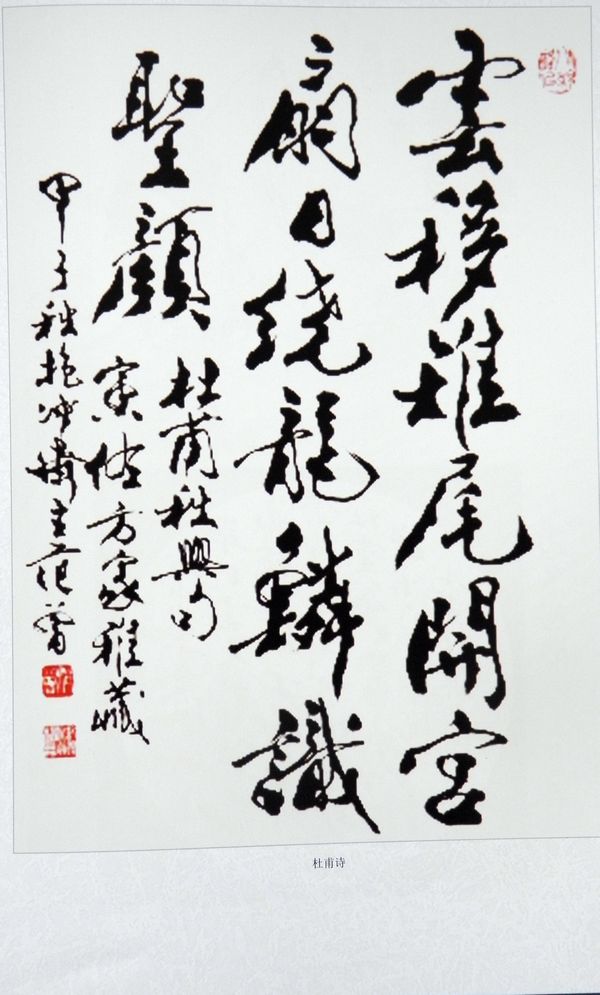 雲移雉尾開宮
扇日繞龍鱗識
聖顏
杜甫秋興句
方家雅藏
甲子秋抱沖齋主范曾
杜甫诗